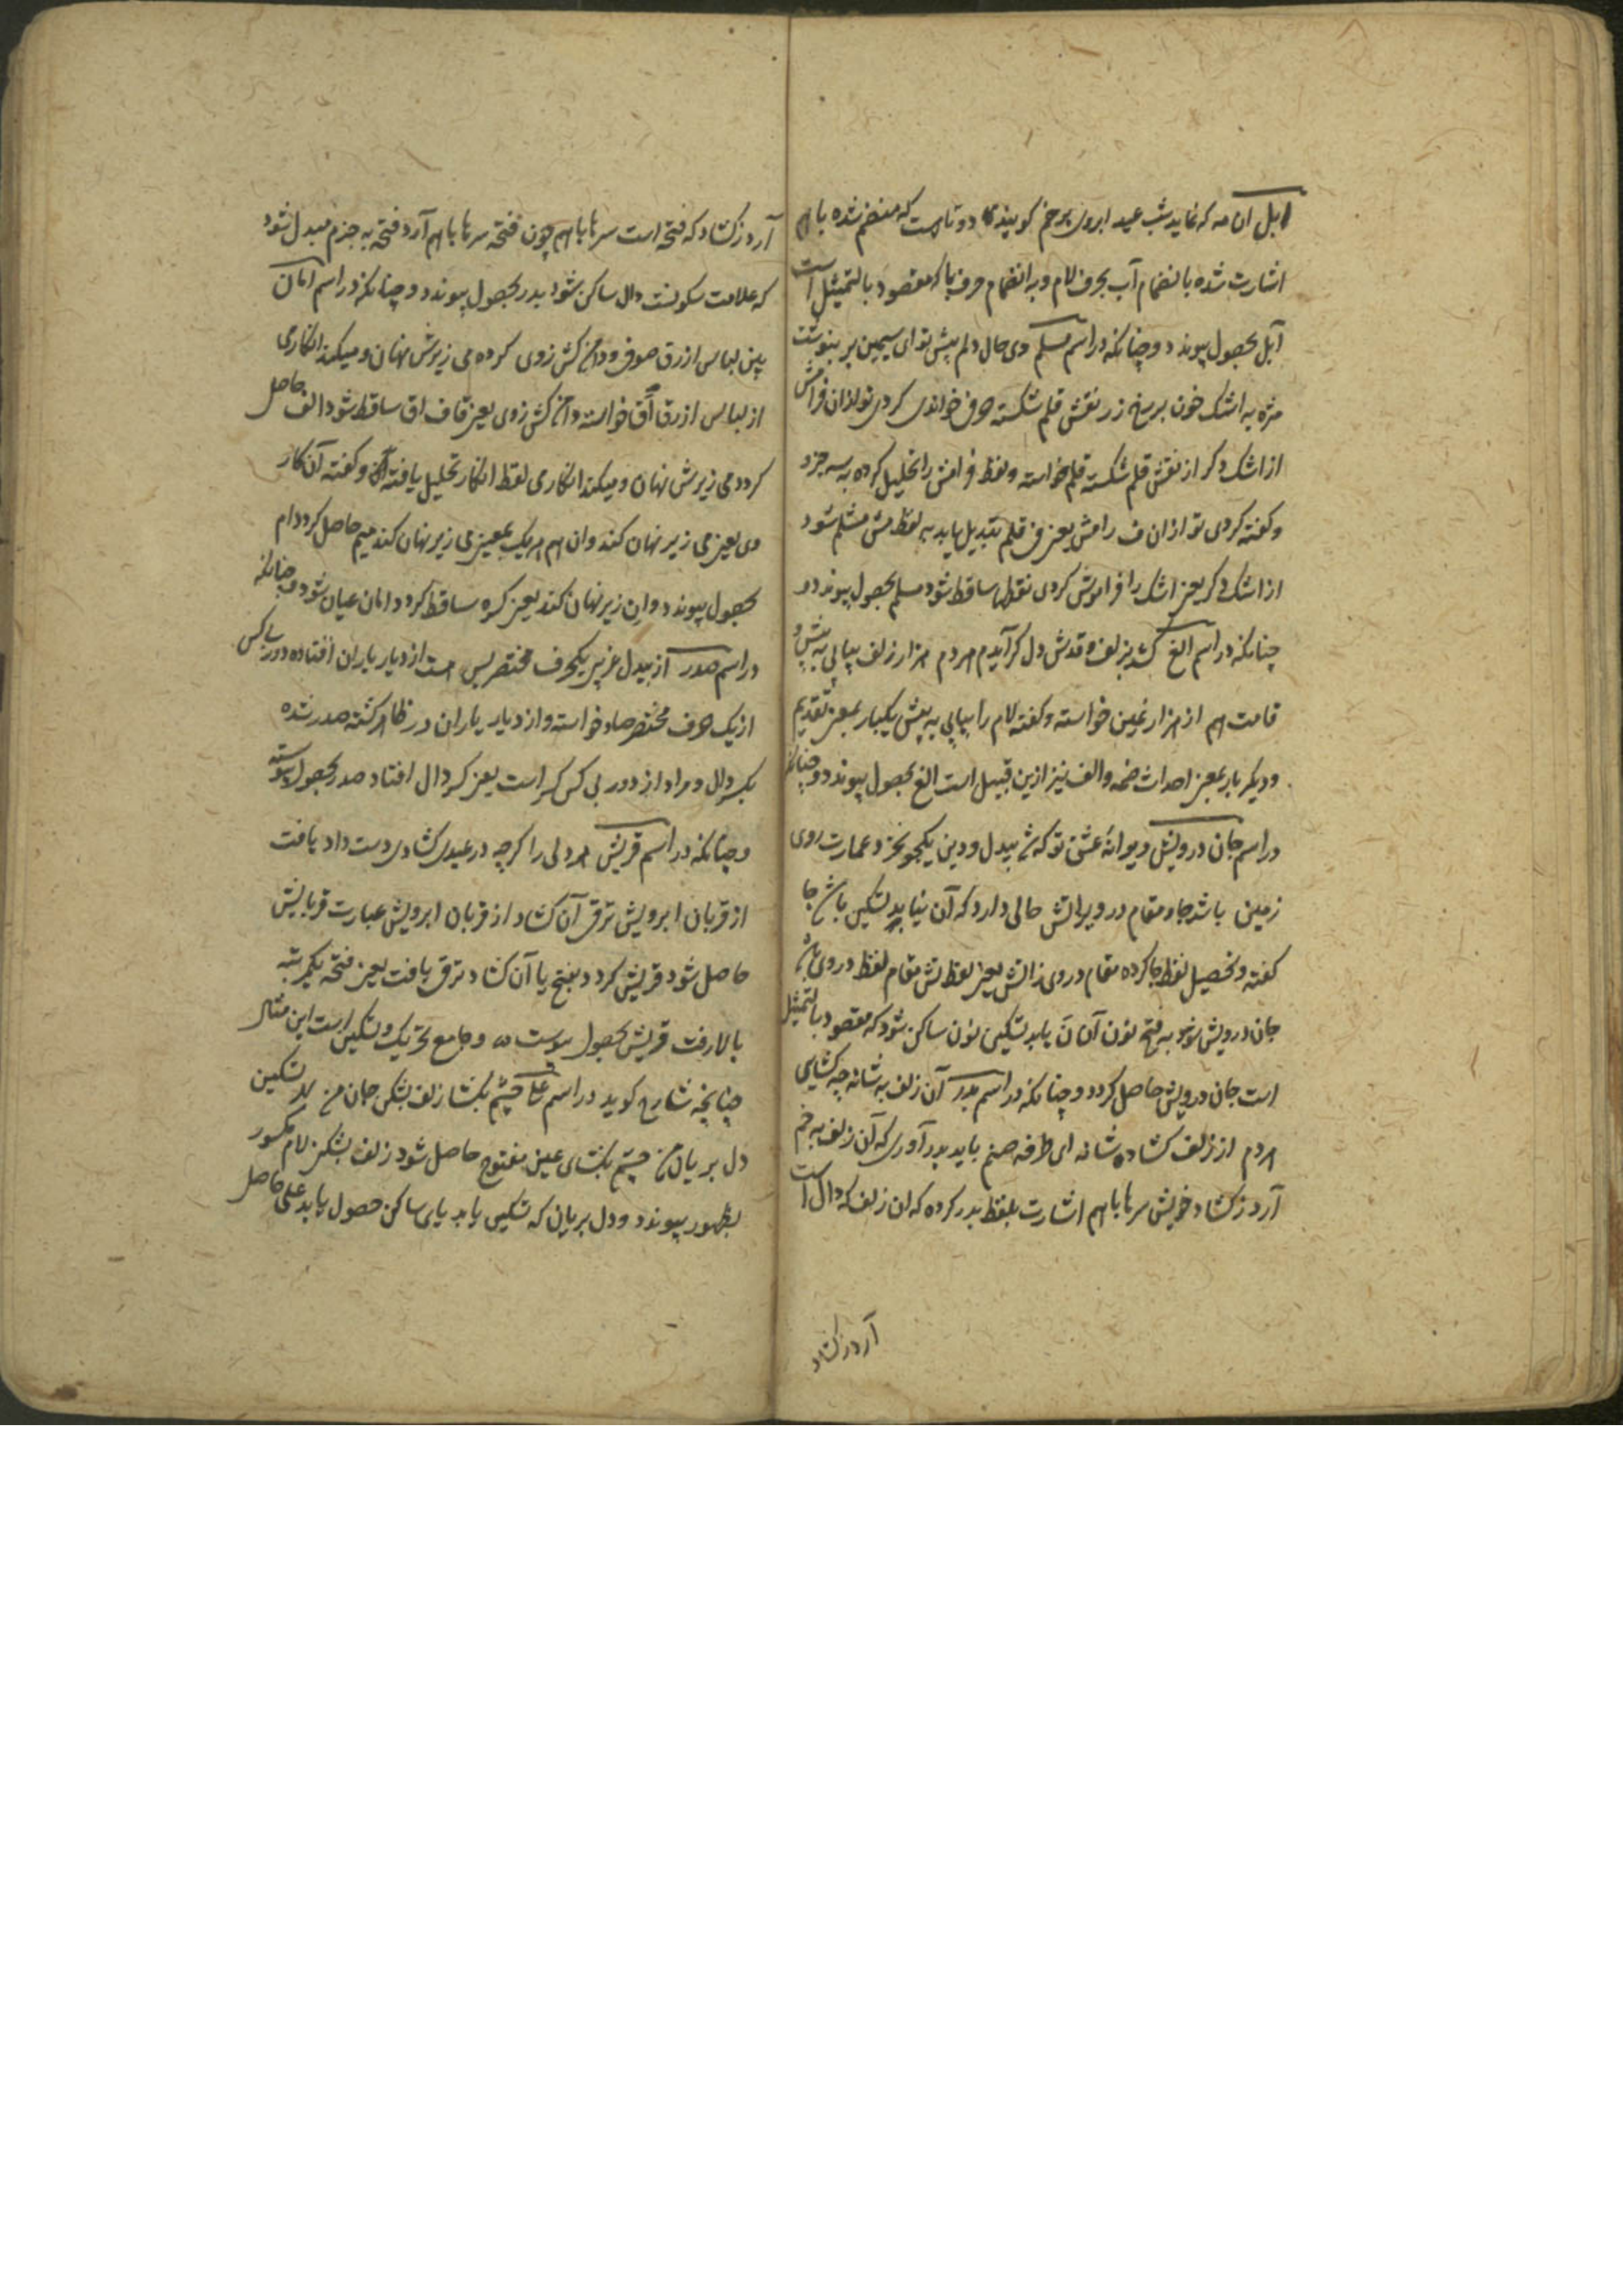 ابل آن مه که نماید شب عید ابروی پر خم گویند که دو تا هست که منضم شده با هم
اشارت شده بانضمام آب بحرف لام و به انضمام حرف با که مقصود بالتمثیل است
آبل بحصول پیوندد و چنانکه در اسم مسلم دی حال دلم پیش تو ای سیمین بر بنوشت
مژه به اشک خون بر رخ زر نقش قلم شکسته حرفی خواندی کردی تو از ان فرامش
از اشک دگر از نقش قلم شکسته قلم خواسته و لفظ فرامش را تحلیل کرده به سه جزء
و گفته کردی تو از ان ف رامش یعنی ف قلم تبدیل یابد به لفظ مش مشلم شود
از اشک دگر یعنی اشک را فراموش کردی نقطها ساقط شود مسلم بحصول پیوندد و
چنانکه در اسم الغ کشد بزلف و قدش دل گر آیدم هر دم هزار زلف پیاپی به پیش و
قامت هم از هزار غین خواسته و گفته لام را پیاپی به پیش یکبار بمعنی تقدیم
و دیگر بار بمعنی احداث ضمه و الف نیز ازین قبیل است الغ بحصول پیوندد و چنانکه
در اسم جان درویش دیوانهٔ عشق تو که شد بیدل و دین یکجو نخرد عمارت روی
زمین باشد جا و مقام در ویرانش حالی دارد که آن نیابد تسکین با جا
گفته و تحصیل لفظ جا کرده مقام در وی زانش یعنی لفظ نش مقام لفظ در وی
جان درویش شود به فتح نون آن نَ یابد تسکین نون ساکن شود که مقصود بالتمثیل
است جان درویش حاصل گردد و چنانکه در اسم بدر آن زلف به شانه چه کشایی
هر دم از زلف کشاده شانه ای طرفه صنم باید بدر آوری که آن زلف به خم
آرد ز کشاد خویش سرها با هم اشارت بلفظ بدر کرده که ان زلف که دال است
آرد ز کشاد
آرد ز کشاد که فتحه است سرها با هم چون فتحه سرها با هم آرد فتحه به جزم مبدل شود
که علامت سکونست دال ساکن شود بدر بحصول پیوندد و چنانکه در اسم امان
بین لباس ازرق صوفی و دامن کش زوی کرده می زیرش نهان و میکند انکاری
از لباس ازرق اق خواسته دامن کش زوی یعنی قاف اق ساقط شود الف حاصل
گردد می زیرش نهان و میکند انکاری لفظ انکار تحلیل یافته و گفته آن کار
وی یعنی می زیر نهان کند و ان هم هر یک بمعنی می زیر نهان کند میم حاصل گردد ام
بحصول پیوندد و ان زیر نهان کند یعنی کره ساقط گردد امان عیان شود و چنانکه
در اسم صدر از بیدل عزیز یکحرف مختصر بس هست از دیار یاران افتاده دور بی کس
از یک حرف مختصر صاد خواسته و از دیار یاران در ظاهر گشته صدر شده
بکسر دال و مراد از دور بی کس کسر است یعنی کسر دال افتاد صدر بحصول پیوسته
و چنانکه در اسم قریش هر دلی را گرچه در عیدی کشادی دست داد یافت
از قربان ابرویش ترقی آن کشاد از قربان ابرویش عبارت قربایش
حاصل شود قریش گردد بفتح یا آن کشاد ترقی یافت یعنی فتحه یکمرتبه
بالا رفت قریش بحصول پیوست و جامع تحریک و تسکین است این مثال
چنانچه شارح گوید در اسم علی چشم بکشا زلف بشکن جان من بهر تسکین
دل بریان من چشم بکشای عین مفتوح حاصل شود زلف بشکن لام مکسور
بظهور پیوندد و دل بریان که تسکین یابد یای ساکن حصول یابد علی حاصل